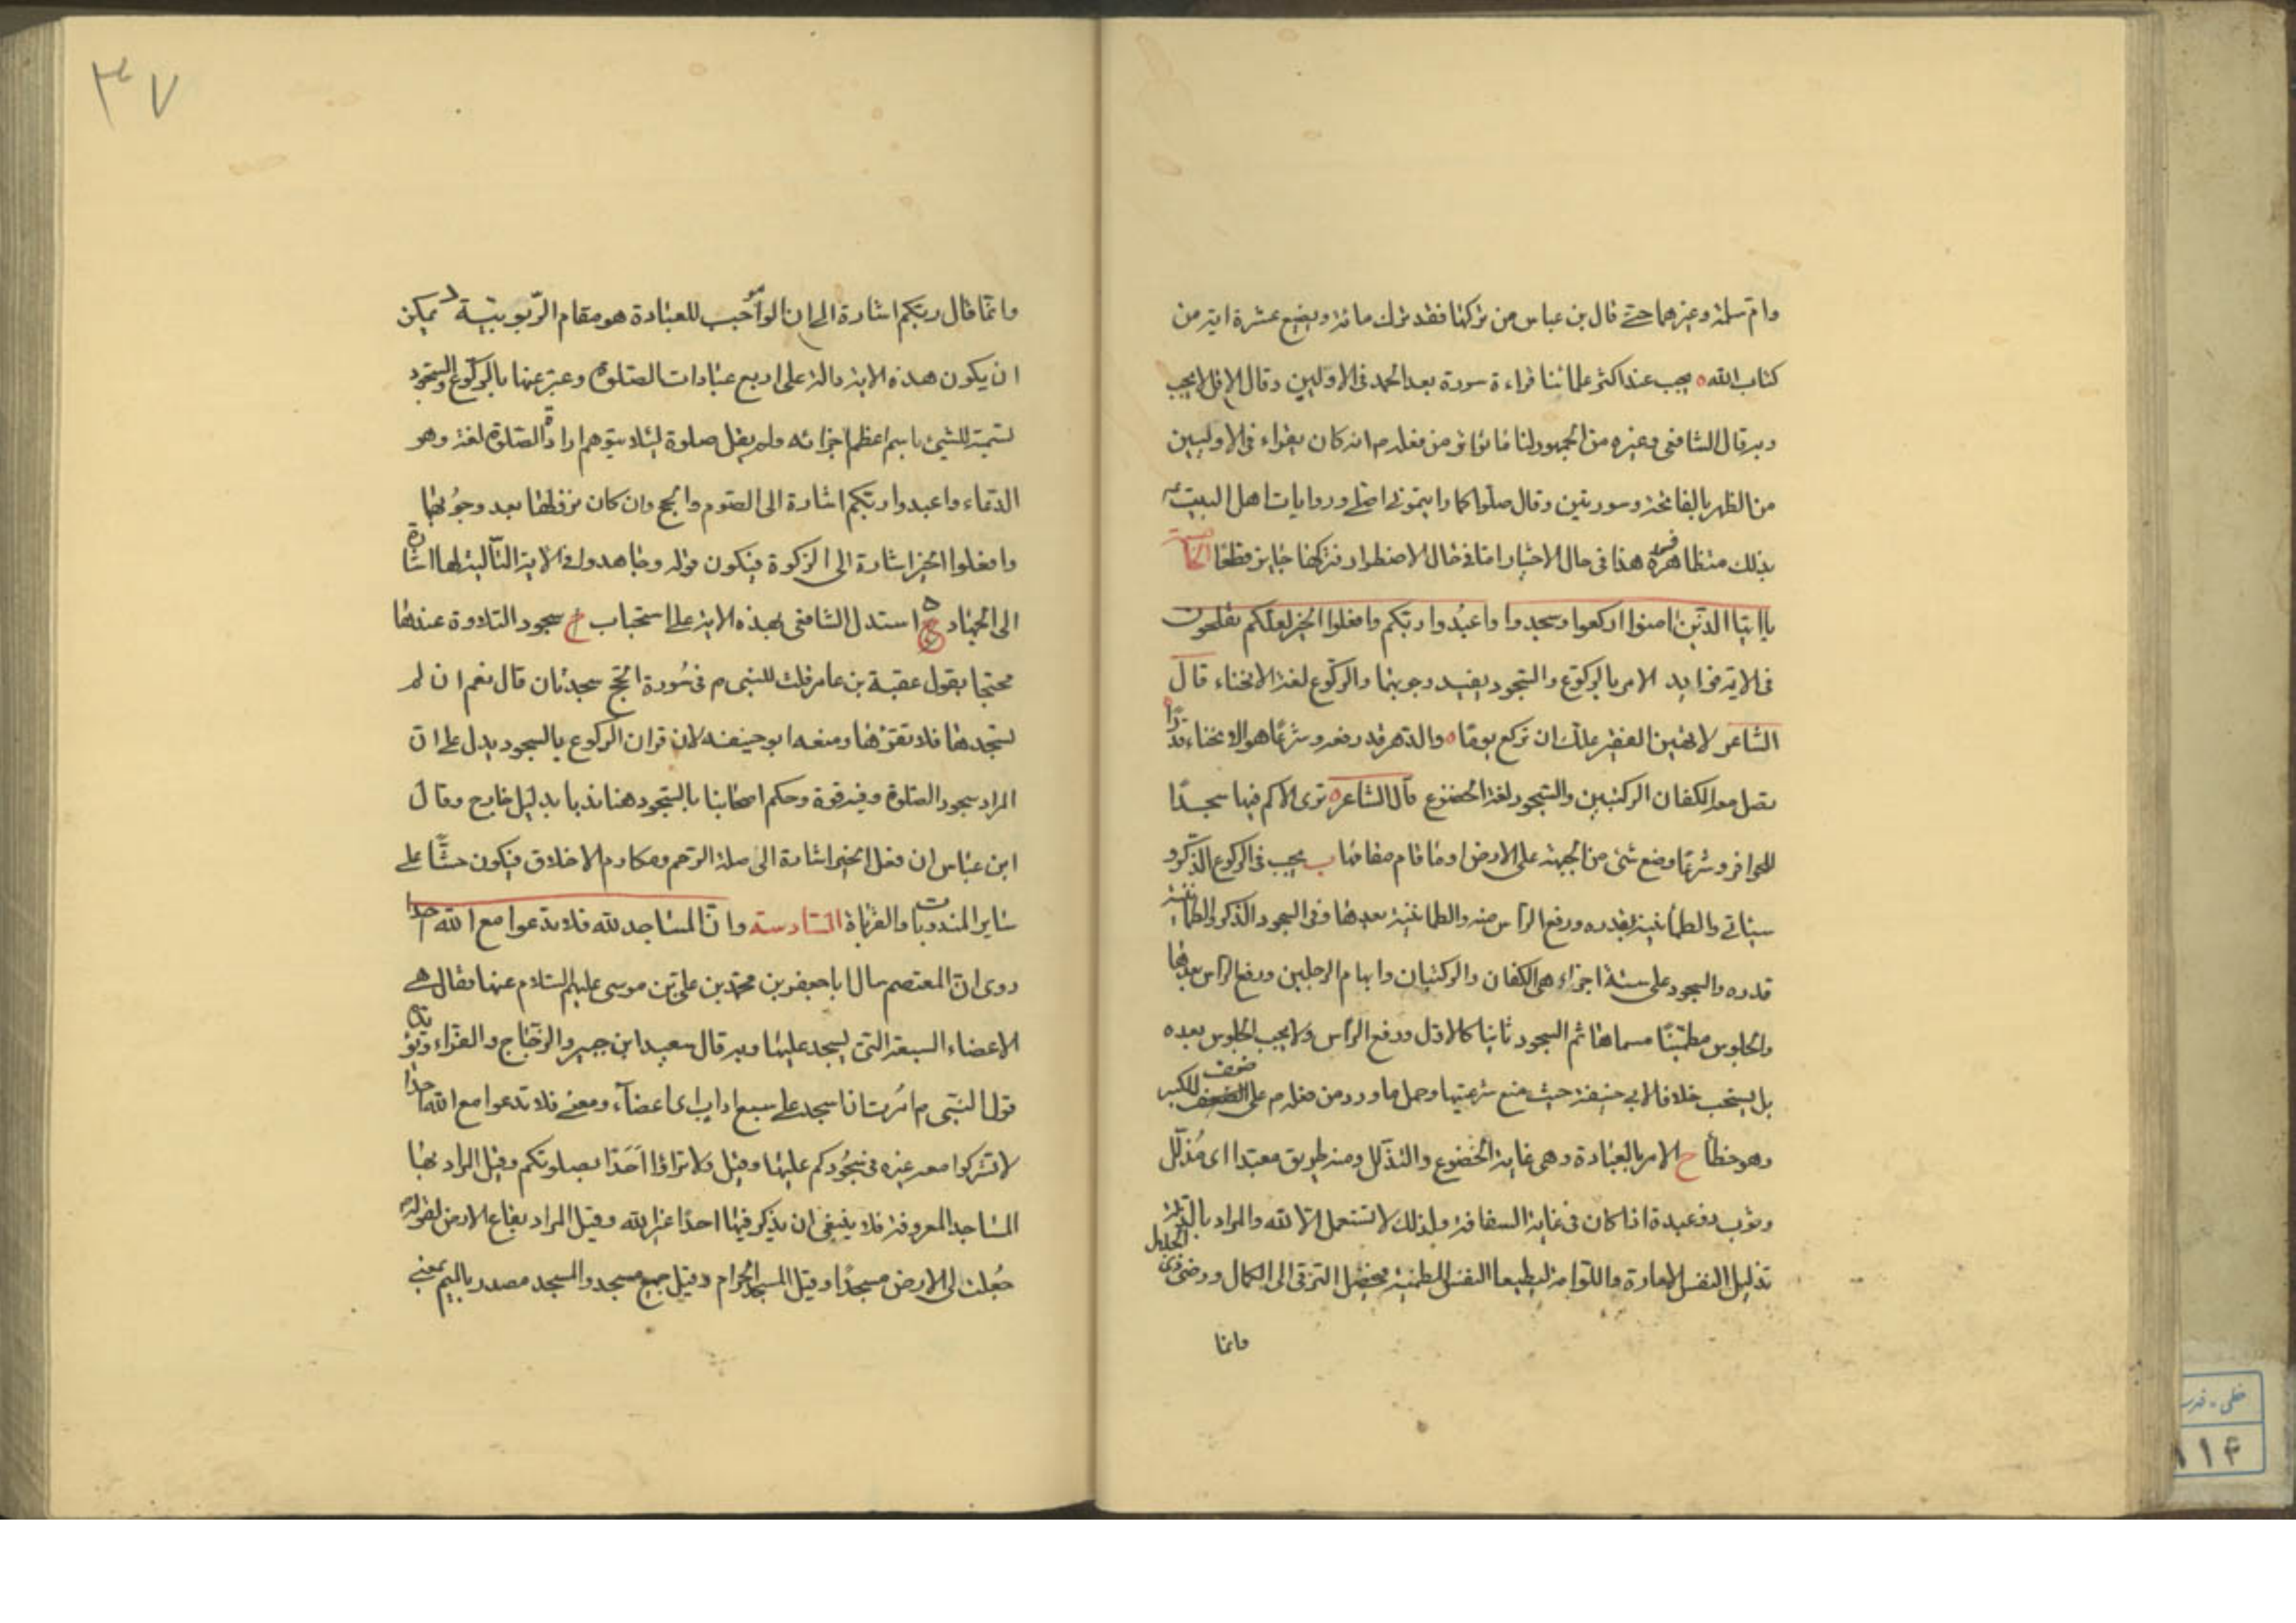 وام سلمة وغيرهما حتى قال بن عباس من تركها فقد ترك مائة وبضع عشرة اية من
كتاب الله ه يجب عند اكثر علمائنا قراءة سورة بعد الحمد فى الاوليين وقال الاقل لا يجب
وبه قال الشافعى وغيره من الجمهور لنا ما تواتر من فعله م انه كان يقراء فى الاوليين
من الظهر بالفاتحة وسورتين وقال صلوا كما رايتمونى اصلى وروايات اهل البيت ع
بذلك متظافرة هذا فى حال الاختيار اما فى حال الاضطرار فتركها جايز قطعا الخامسة
يا ايها الذين امنوا اركعوا وسجدوا واعبدوا ربكم وافعلوا الخير لعلكم تفلحون
فى الاية فوايد الامر بالركوع والسجود يفيد وجوبهما والركوع لغة الانحناء قال
الشاعر لا تهين الفقير علك ان تركع يوما ه والدهر قد رفعه وشرعا هو الانحناء قدرا
تصل معه الكفان الركبتين والسجود لغة الخضوع قال الشاعر ه ترى الاكم فيها سجدا
للحوافر وشرعا وضع شئ من الجبهة على الارض او ما قام مقامها ب يجب فى الركوع الذكر و
سياتى والطمأنينة بقدره ورفع الراس منه والطمانينة بعدها وفى السجود الذكر والطمانينة
قدره والسجود على ستة اجزاء هى الكفان والركبتان وابهام الرجلين ورفع الراس بعدها
والجلوس مطمئنا مسماها ثم السجود ثانيا كالاول ورفع الراس ولا يجب الجلوس بعده
بل يستحب خلافا لابى حنيفة حيث منع شرعيتها وحمل ما ورد من فعله م على الضعف للكبر
وهو خطأ ح الامر بالعبادة وهى غاية الخضوع والتذلل ومنه طريق معبد اى مذلل
وثوب ذو عبدة اذا كان فى غاية السفاقة ولذلك لا تستعمل الا لله والمراد بالتذلل
تذليل النفس الامارة واللوامة ليطيعا النفس المطمئنة فيحصل الترقى الى الكمال ورضى ذى الجلال
وانما
٣٧
وانما قال ربكم اشارة الى ان الموجب للعبادة هو مقام الربوبية د يمكن
ان يكون هذه الاية دالة على اربع عبادات الصلوة وعبر عنها بالركوع والسجود
تسمية للشئ باسم اعظم اجزائه ولم يقل صلوة لئلا يتوهم ارادة الصلوة لغة وهو
الدعاء واعبدوا ربكم اشارة الى الصوم والحج وان كان بعد وجوبها
وافعلوا الخير اشارة الى الزكوة فيكون قوله وجاهدوا فى الاية التالية لها اشارة
الى الجهاد ه استدل الشافعى بهذه الاية على استحباب سجود التلاوة عندها
محتجا بقول عقبة بن عامر قلت للنبى م فى سورة الحج سجدتان قال نعم ان لم
تسجدها فلا تقرءها ومنعه ابو حنيفه لان قران الركوع بالسجود يدل على ان
المراد سجود الصلوة وفيه قوة وحكم اصحابنا بالسجود هنا ندبا بدليل خارج وقال
ابن عباس ان فعل الخير اشارة الى صلة الرحم ومكارم الاخلاق فيكون حثا على
ساير المندوبات والقربات السادسة وان المساجد لله فلا تدعوا مع الله احدا
روى ان المعتصم سال ابا جعفر بن محمد بن على بن موسى عليهم السلام عنها فقال هى
الاعضاء السبعة التى يسجد عليها وبه قال سعيد ابن جبير والزجاج والفراء ويؤيده
قول النبى م امرت ان اسجد على سبعة اداب اى اعضآء ومعنى فلا تدعوا مع الله احدا
لا تشركوا معه غيره فى سجودكم عليها وقيل ولا تراؤا احدا بصلوتكم وقيل المراد بها
المساجد المعروفة فلا ينبغى ان يذكر فيها احدا غير الله وقيل المراد بقاع الارض لقوله
جعلت لى الارض مسجدا وقيل المسجد الحرام وقيل جمع مسجد والمسجد مصدر بالميم بمعنى
خطى - فهرست